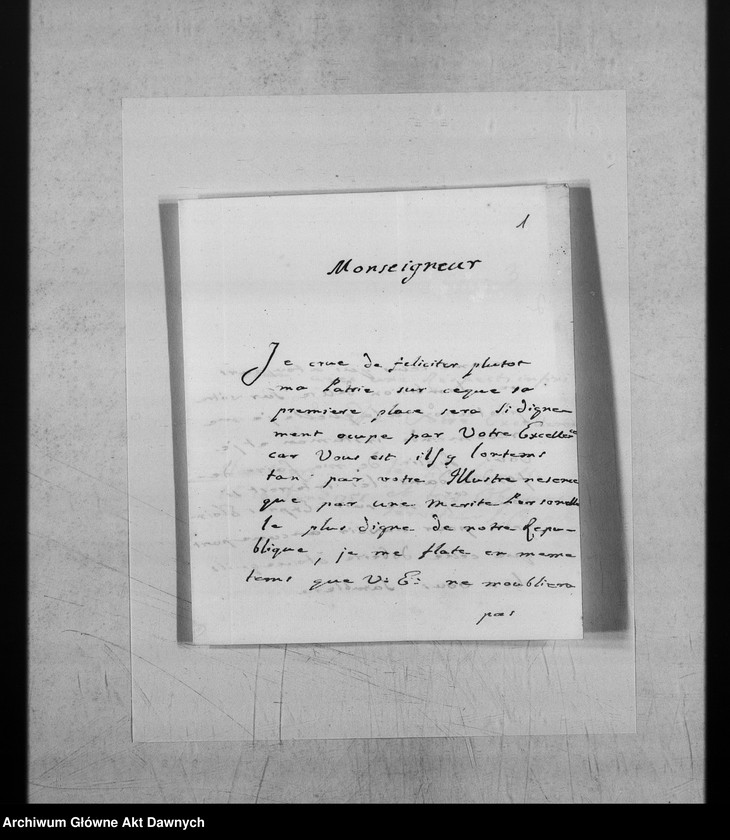 1
Monseigneur
Je crue de feliciter plutot
ma Patrie sur ceque sa
premiere place sera si digne-
ment ocupe par Votre Excellce
car Vous est il y lontems
tan par votre Illustre
que par une merite Personelle
le plus digne de notre Repu-
blique, je me flate en meme
tems que V: E: ne moubliera
pas
Archiwum Główne Akt Dawnych